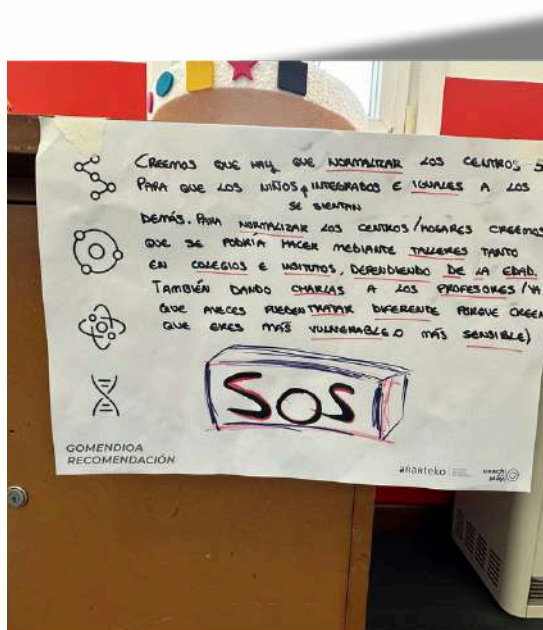 CREEMOS QUE HAY QUE NORMALIZAR LOS CENTROS S
PARA QUE LOS NIÑOS, INTEGRADOS E IGUALES A LOS
SE SIENTAN
DEMÁS. PARA NORMALIZAR LOS CENTROS/HOGARES CREEMOS
QUE SE PODRIA HACER MEDIANTE TALLERES TANTO
EN COLEGIOS E INSITUTOS, DEPENDIENDO DE LA EDAD.
TAMBIÉN DANDO CHARLAS A LOS PROFESORES (YA
QUE AVECES PUEDEN TRATAR DIFERENTE PORQUE CREEN
QUE ERES MÁS VULNERABLE O MÁS SENSIBLE)
SOS
GOMENDIOA
RECOMENDACIÓN
ararteko